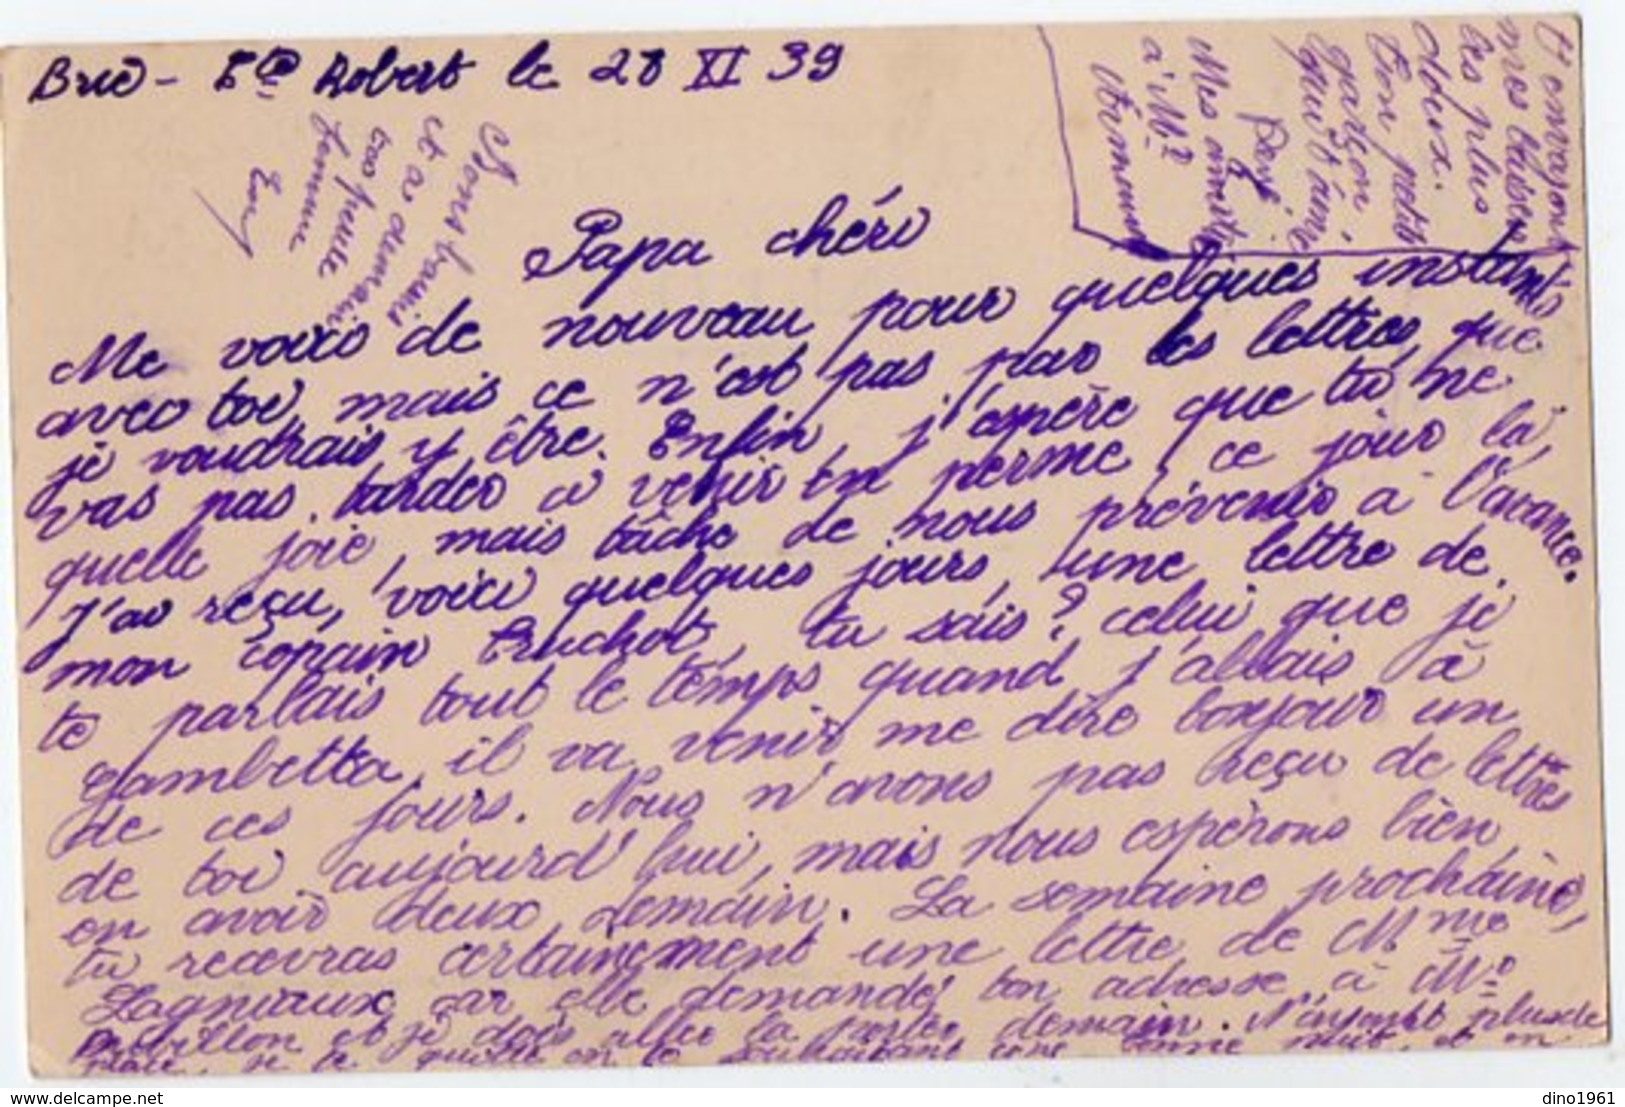 Brie - Cte Robert le 28 XI 39
Papa chéri
Me voici de nouveau pour quelques instants
avec toi, mais ce n'est pas par les lettres que
je voudrais y être. Enfin, j'espère que tu ne
vas pas tarder à venir en perme, ce jour là,
quelle joie, mais tâche de nous prévenir à l'avance.
J'ai reçu, voici quelques jours, une lettre de
mon copain Truchot, tu sais? celui que je
te parlais tout le temps quand j'allais à
Gambetta, il va venir me dire bonjour un
de ces jours. Nous n'avons pas reçu de lettres
de toi aujourd'hui, mais nous espérons bien
en avoir deux demain. La semaine prochaine,
tu recevras certainement une lettre de Mme
Lagniaux car elle demande ton adresse à Mr
et je dois aller la porter demain. N'ayant plus de
place, je te quitte en te souhaitant une bonne nuit, et en
t'envoyant
mes baisers
les plus
doux.
Ton petit
garçon,
qui t'aime
Mes amitiés
à Mr
Bons baisers
et à demain
ta petite
femme